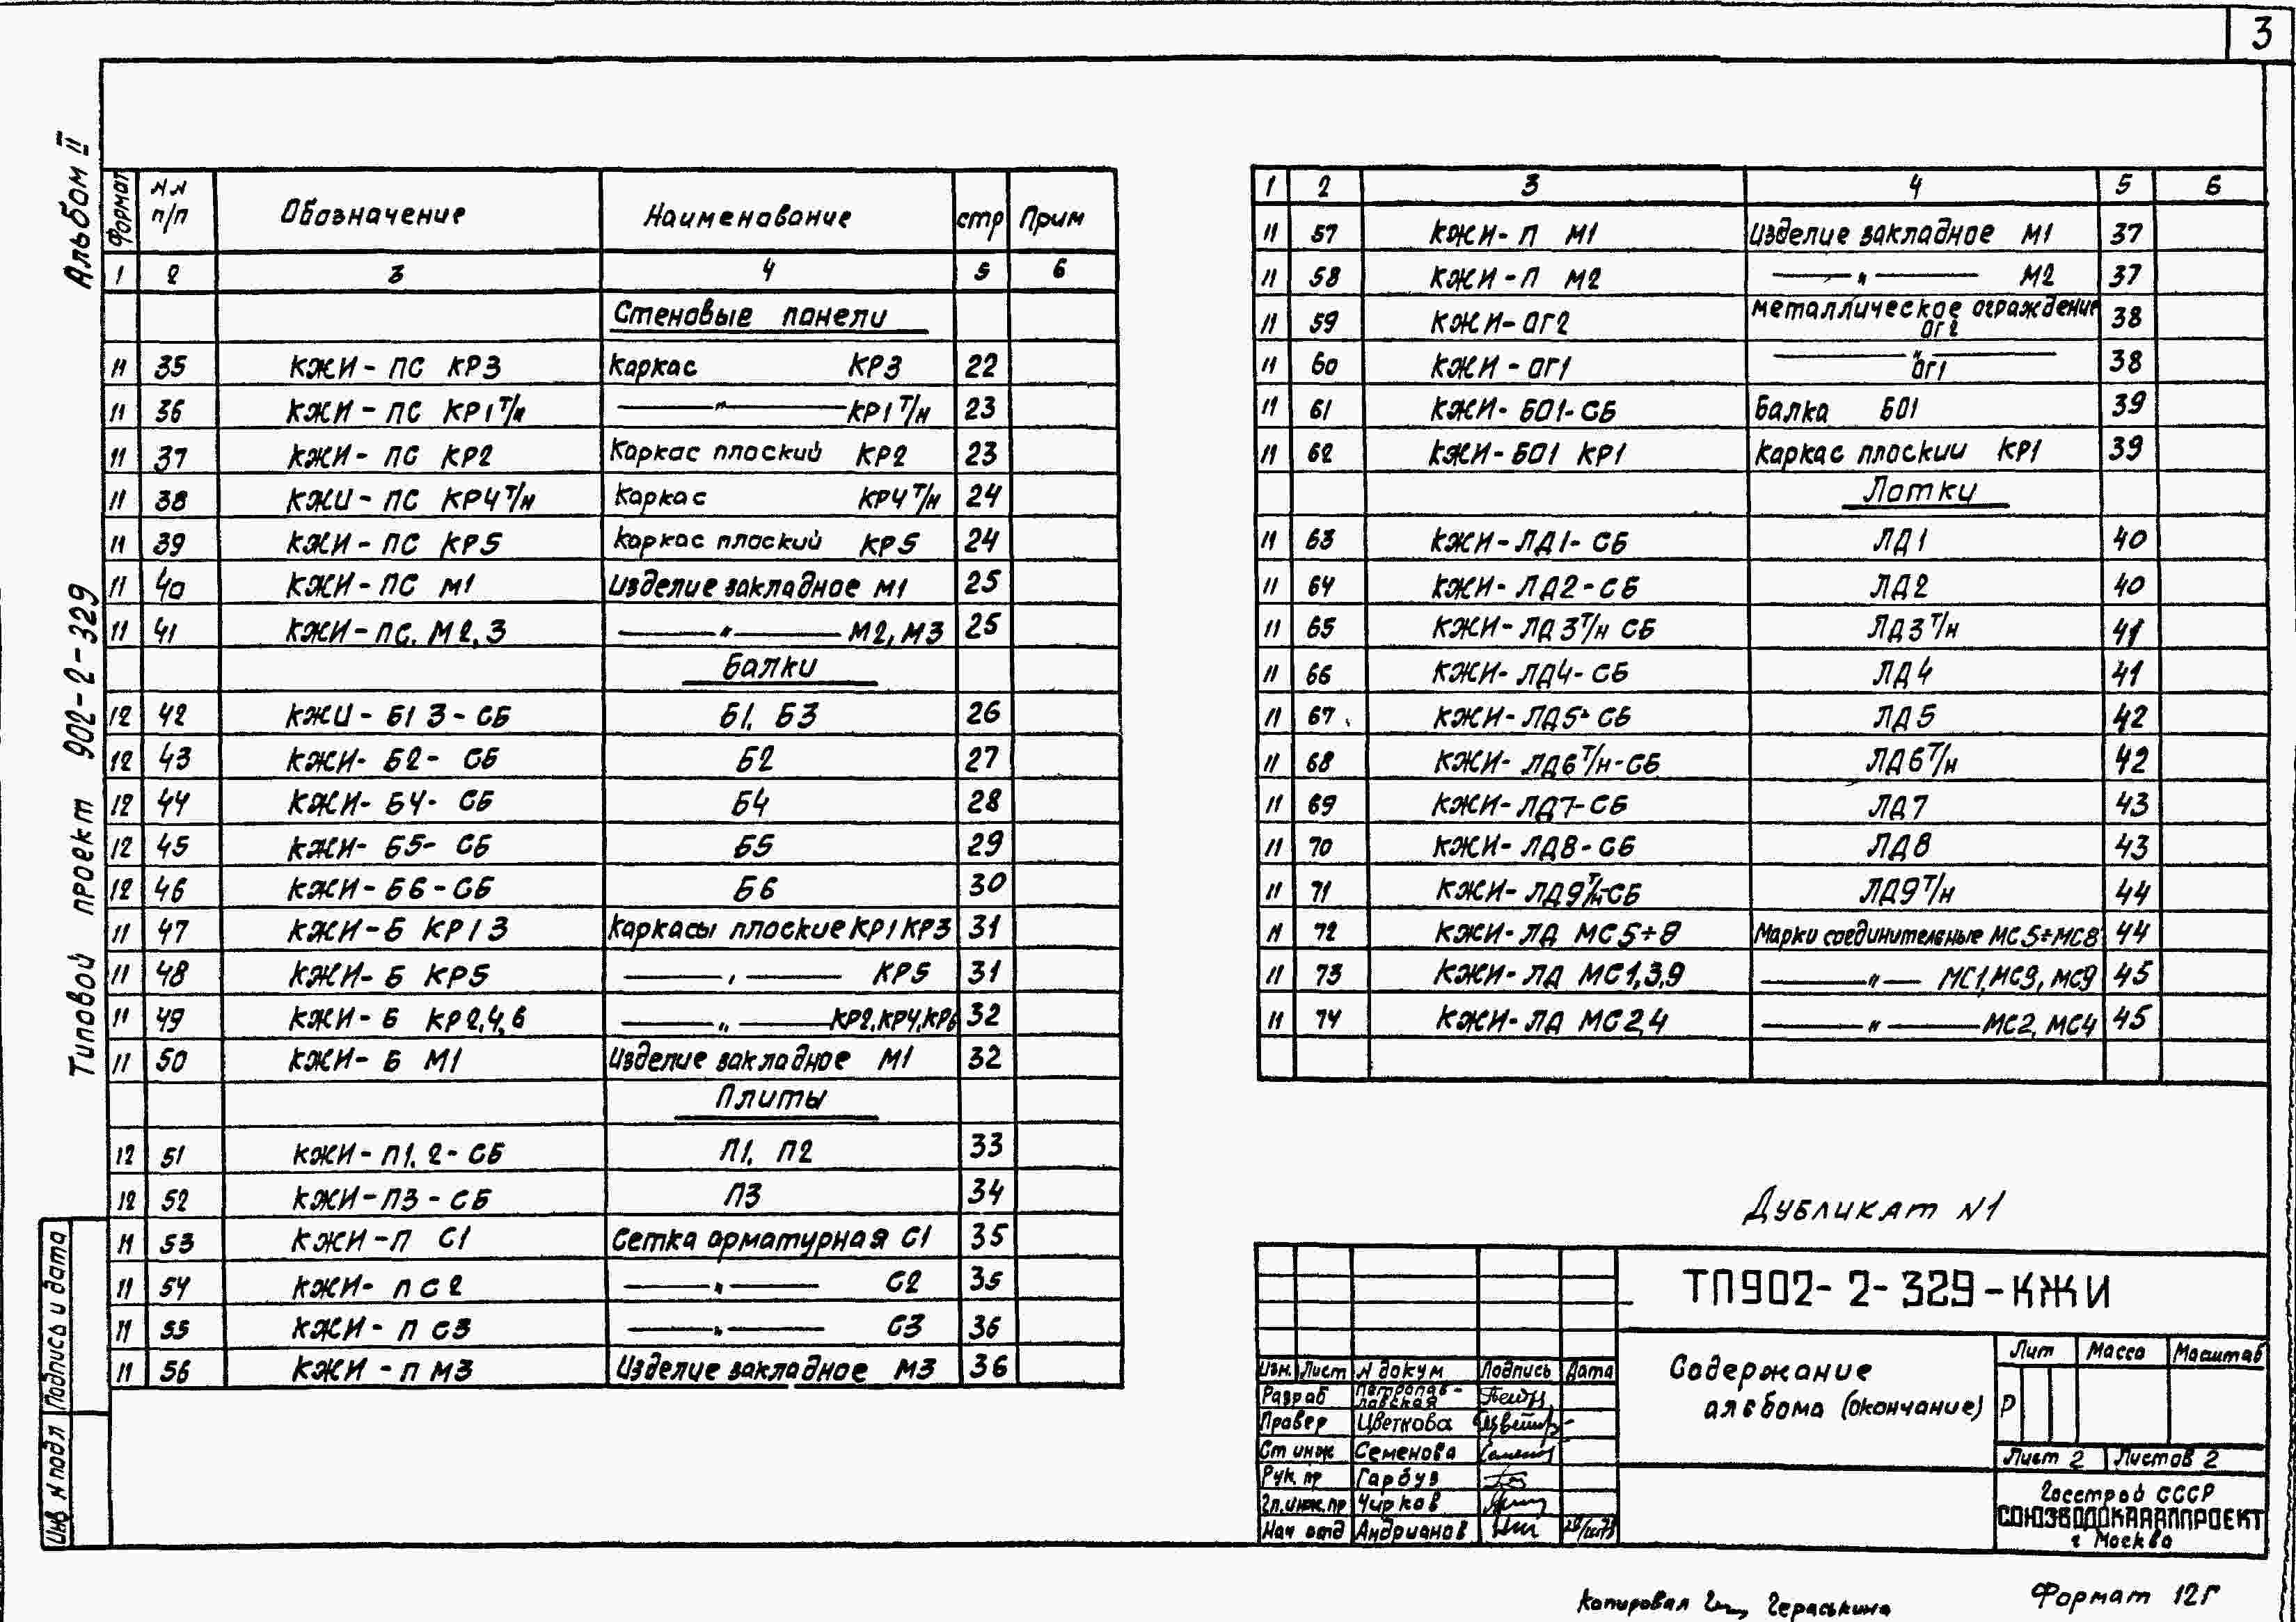 3
Альбом II
Типовой проект 902-2-329
Формат | NN п/п | Обозначение | Наименование | стр | Прим
1 | 2 | 3 | 4 | 5 | 6
Стеновые панели
11 | 35 | КЖИ - ПС КР3 | Каркас КР3 | 22
11 | 36 | КЖИ - ПС КР1 т/н | —— " —— КР1 т/н | 23
11 | 37 | КЖИ - ПС КР2 | Каркас плоский КР2 | 23
11 | 38 | КЖИ - ПС КР4 т/н | Каркас КР4 т/н | 24
11 | 39 | КЖИ - ПС КР5 | Каркас плоский КР5 | 24
11 | 40 | КЖИ - ПС М1 | Изделие закладное М1 | 25
11 | 41 | КЖИ - ПС. М2,3 | —— " —— М2, М3 | 25
Балки
12 | 42 | КЖИ - Б1 3 - СБ | Б1. Б3 | 26
12 | 43 | КЖИ - Б2 - СБ | Б2 | 27
12 | 44 | КЖИ - Б4 - СБ | Б4 | 28
12 | 45 | КЖИ - Б5 - СБ | Б5 | 29
12 | 46 | КЖИ - Б6 - СБ | Б6 | 30
11 | 47 | КЖИ - Б КР1 3 | Каркасы плоские КР1 КР3 | 31
11 | 48 | КЖИ - Б КР5 | —— " —— КР5 | 31
11 | 49 | КЖИ - Б КР2,4,6 | —— " —— КР2, КР4, КР6 | 32
11 | 50 | КЖИ - Б М1 | Изделие закладное М1 | 32
Плиты
12 | 51 | КЖИ - П1. 2 - СБ | П1. П2 | 33
12 | 52 | КЖИ - П3 - СБ | П3 | 34
11 | 53 | КЖИ - П С1 | Сетка арматурная С1 | 35
11 | 54 | КЖИ - П С2 | —— " —— С2 | 35
11 | 55 | КЖИ - П С3 | —— " —— С3 | 36
11 | 56 | КЖИ - П М3 | Изделие закладное М3 | 36
1 | 2 | 3 | 4 | 5 | 6
11 | 57 | КЖИ - П М1 | Изделие закладное М1 | 37
11 | 58 | КЖИ - П М2 | —— " —— М2 | 37
11 | 59 | КЖИ - ОГ2 | металлическое ограждение ОГ2 | 38
11 | 60 | КЖИ - ОГ1 | —— " —— ОГ1 | 38
11 | 61 | КЖИ - БО1 - СБ | Балка БО1 | 39
11 | 62 | КЖИ - БО1 КР1 | Каркас плоский КР1 | 39
Лотки
11 | 63 | КЖИ - ЛД1 - СБ | ЛД1 | 40
11 | 64 | КЖИ - ЛД2 - СБ | ЛД2 | 40
11 | 65 | КЖИ - ЛД3 т/н СБ | ЛД3 т/н | 41
11 | 66 | КЖИ - ЛД4 - СБ | ЛД4 | 41
11 | 67 | КЖИ - ЛД5 - СБ | ЛД5 | 42
11 | 68 | КЖИ - ЛД6 т/н - СБ | ЛД6 т/н | 42
11 | 69 | КЖИ - ЛД7 - СБ | ЛД7 | 43
11 | 70 | КЖИ - ЛД8 - СБ | ЛД8 | 43
11 | 71 | КЖИ - ЛД9 т/н - СБ | ЛД9 т/н | 44
11 | 72 | КЖИ - ЛД МС5÷8 | Марки соединительные МС5÷МС8 | 44
11 | 73 | КЖИ - ЛД МС1,3,9 | —— " —— МС1, МС3, МС9 | 45
11 | 74 | КЖИ - ЛД МС2,4 | —— " —— МС2, МС4 | 45
Дубликат N1
ТП902-2-329-КЖИ
Содержание
альбома (окончание)
Лит | Масса | Масштаб
Р
Лист 2 | Листов 2
Госстрой СССР
СОЮЗВОДОКАНАЛПРОЕКТ
г Москва
Изм. | Лист | N докум | Подпись | Дата
Разраб | Петропавловская
Провер | Цветкова
Ст инж | Семенова
Рук. пр | Гарбуз
Гл. инж. пр | Чирков
Нач отд | Андрианов
Подпись и дата
Инв N подл
Копировал Гераськина
Формат 12Г